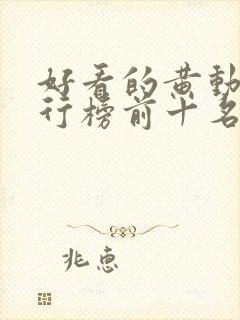 好看的黄动
行榜前十名
兆惠